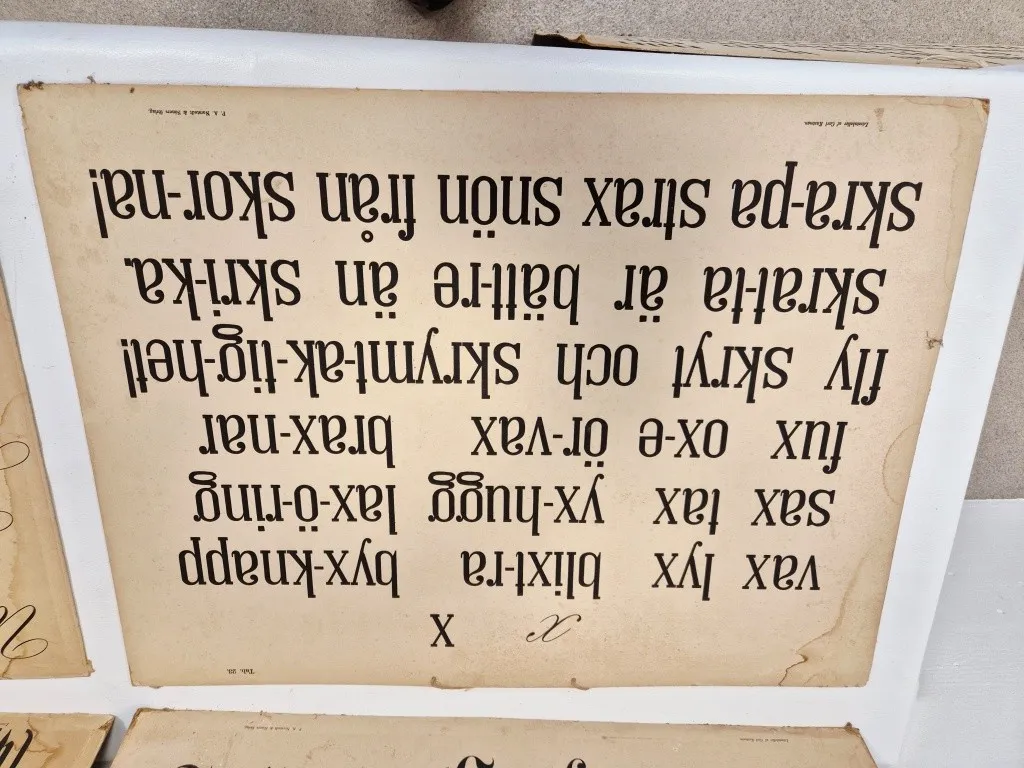 Tab. 23.
x x
vax lyx blixt-ra byx-knapp
sax tax yx-hugg lax-ö-ring
fux ox-e ör-vax brax-nar
fly skryt och skrymt-ak-tig-het!
skrat-ta är bätt-re än skri-ka.
skra-pa strax snön från skor-na!
P. A. Norstedt & Söners förlag.